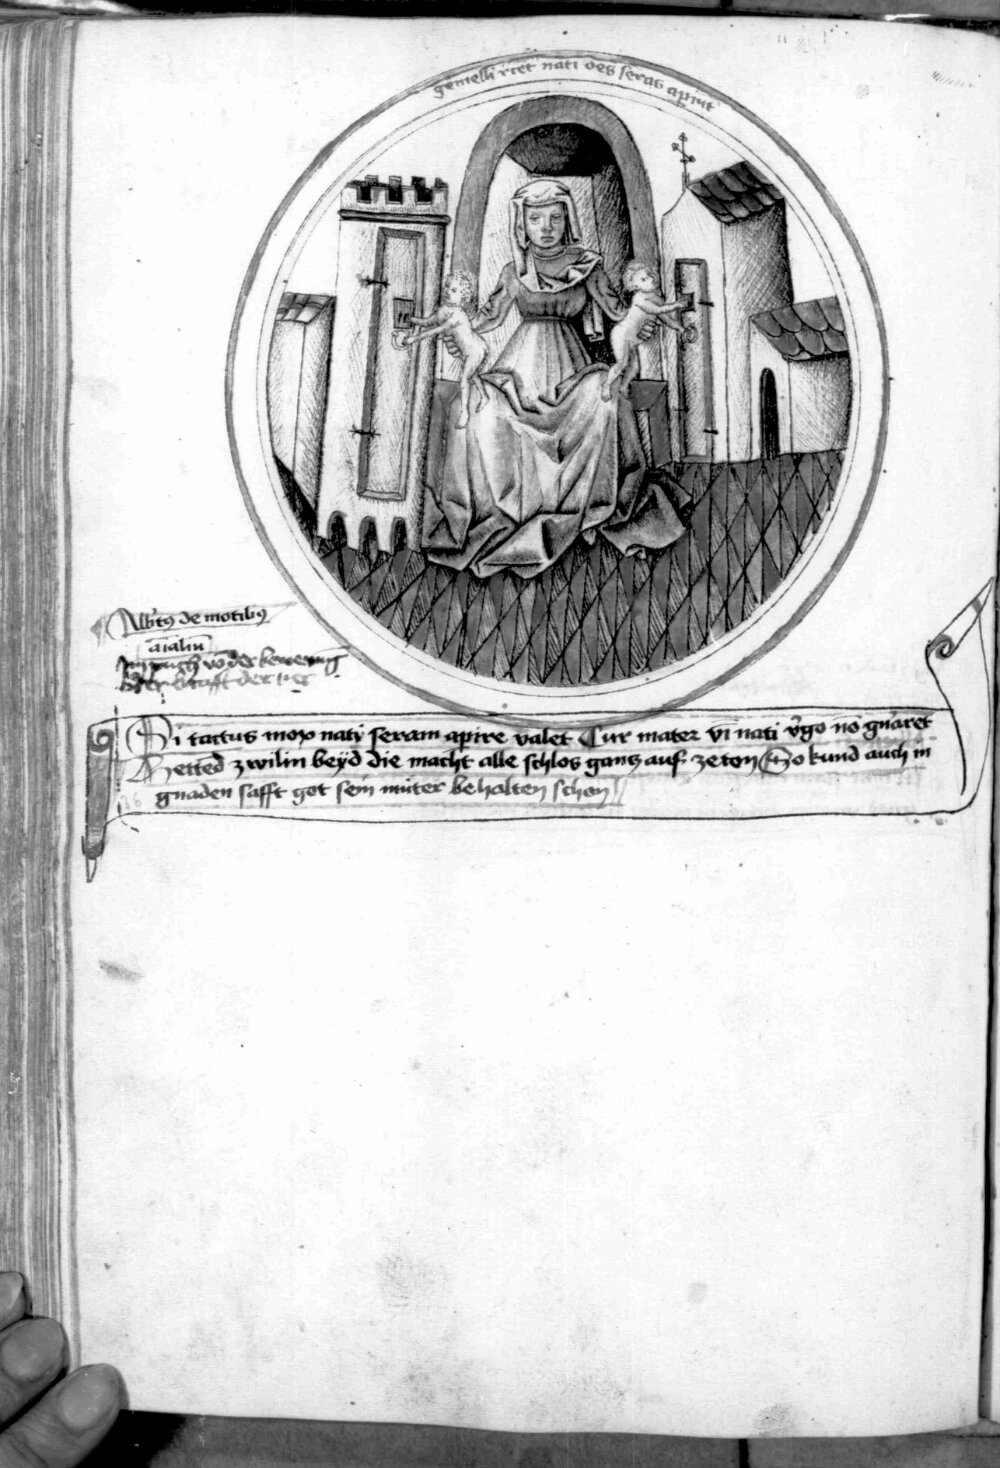 gemelli nati oēs seras apiūt
Alb'tꝰ de motibꝰ
aīaliū
der
Si tactus mox natꝭ seram apire valet Cur mater vī nati v'go nō gn'aret
Hetted zwilin beÿd die macht alle schlos gantz auf zeton So kund auch in
gnaden safft got sein müter behalten schon